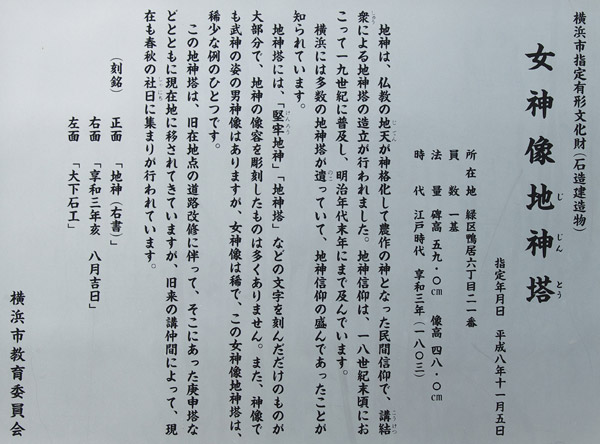 横浜市指定有形文化財(石造建造物)
女神像地神塔
じじんとう
指定年月日 平成八年十一月五日
所在地 緑区鴨居六丁目二一番
員数 一基
法量 碑高 五九・〇㎝ 像高 四八・〇㎝
時代 江戸時代 享和三年(一八〇三)
地神は、仏教の地天が神格化して農作の神となった民間信仰で、講結
衆による地神塔の造立が行われました。地神信仰は、一八世紀末頃にお
こって一九世紀に普及し、明治年代末年にまで及んでいます。
横浜には多数の地神塔が遺っていて、地神信仰の盛んであったことが
知られています。
地神塔には、「堅牢地神」「地神塔」などの文字を刻んだだけのものが
大部分で、地神の像容を彫刻したものは多くありません。また、神像で
も武神の姿の男神像はありますが、女神像は稀で、この女神像地神塔は、
稀少な例のひとつです。
この地神塔は、旧在地点の道路改修に伴って、そこにあった庚申塔な
どとともに現在地に移されてきていますが、旧来の講仲間によって、現
在も春秋の社日に集まりが行われています。
(刻銘) 正面 「地神(右書)」
右面 「享和三年亥 八月吉日」
左面 「大下石工」
横浜市教育委員会